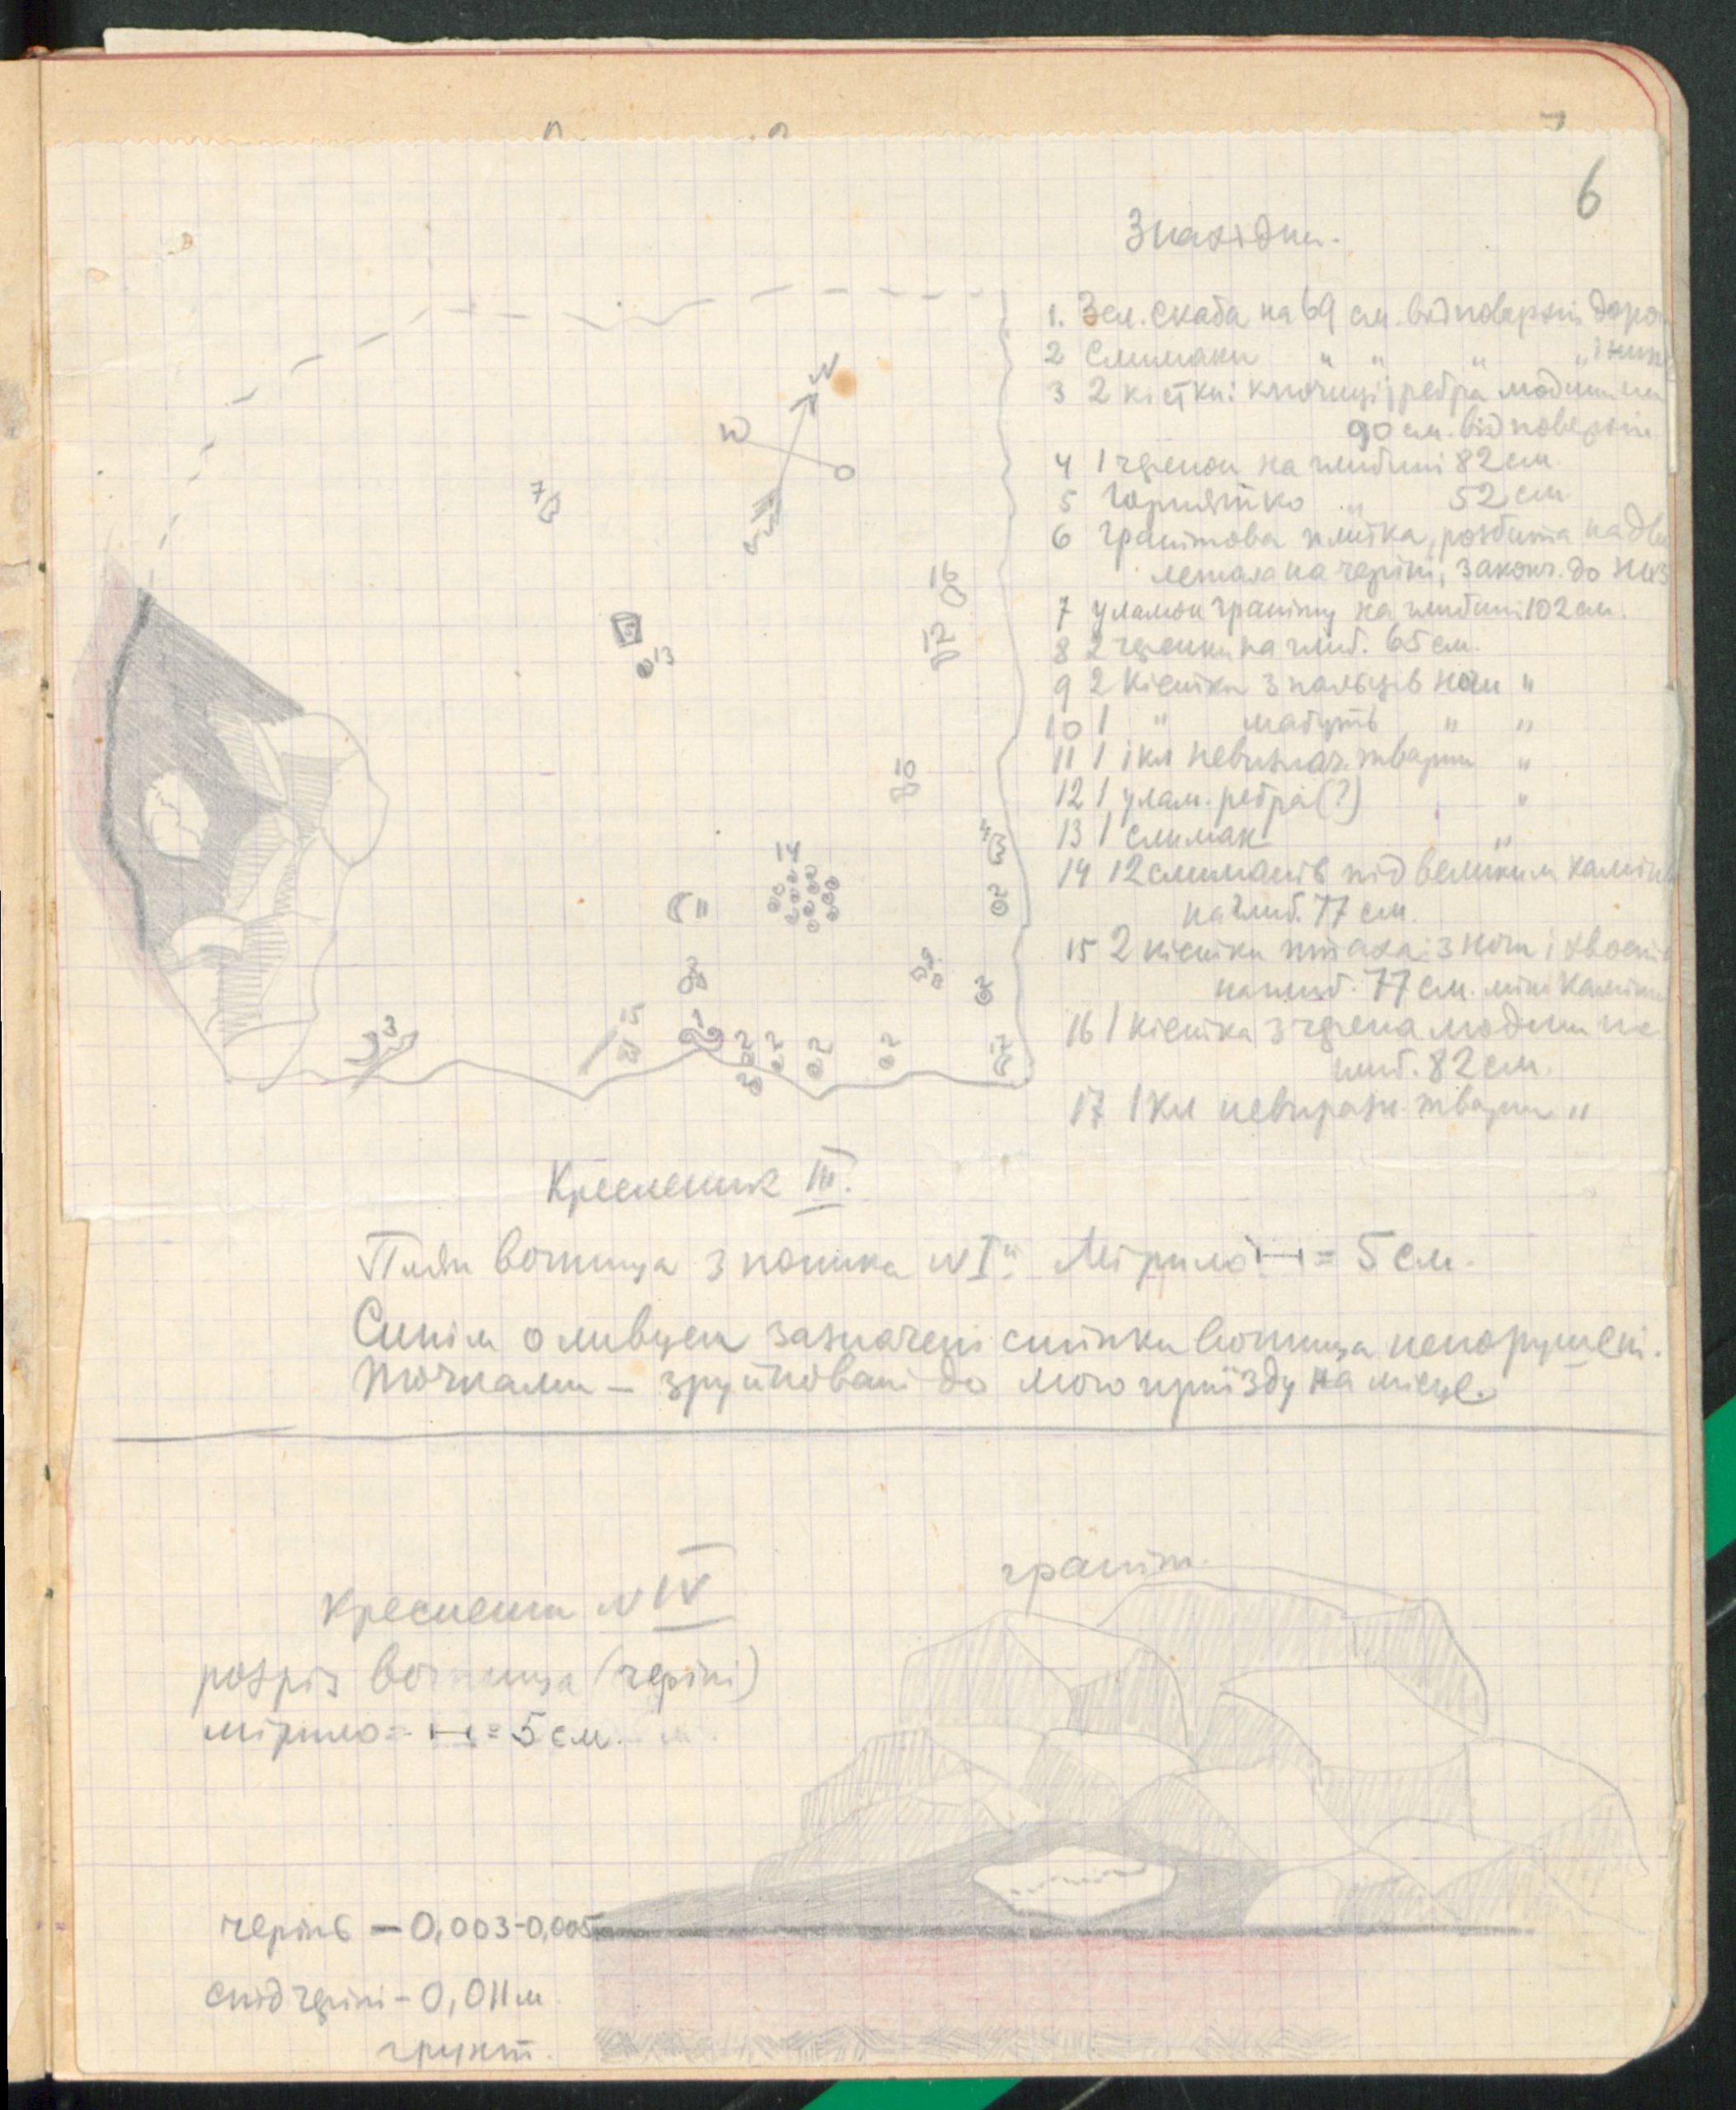 6
Знахідки.
1. Зел. скаба на 69 см. від поверхні
2 Слимаки " " " "
3 2 кістки: ключиці і ребра людини на
90 см. від поверхні
4 1 черепок на глибині 82 см.
5 Горнятко " 52 см
6 Гранітова плитка, розбита на дві
лежала на черіні, закопч. до низ
7 уламок граніту на глибині 102 см.
8 2 черепки на глиб. 65 см.
9 2 кістки з пальців ноги "
10 1 " мабуть " "
11 1 ікл невизнач. тварин "
12 1 улам. ребра (?) "
13 1 слимак "
14 12 слимаків під великим камін
на глиб. 77 см.
15 2 кістки птаха: з ноги і хвоста
на глиб. 77 см. між камін
16 1 кістка з черепа людини на
глиб. 82 см.
17 1 кл тварин "
N
W
O
S
7
16
17
13
10
14
4
11
2
8
9
2
3
15
1
2
2
2
2
2
Креслення III.
Плян вогнища з копика N I". Мірило = 5 см.
Синім оливцем зазначені стінки вогнища непорушені.
Точками – зруйновані до мого приїзду на місце.
Креслення N IV
граніт.
розріз вогнища (черіні)
мірило = = 5 см.
черінь – 0,003-0,005
спід черіні – 0,011 м
грунт.